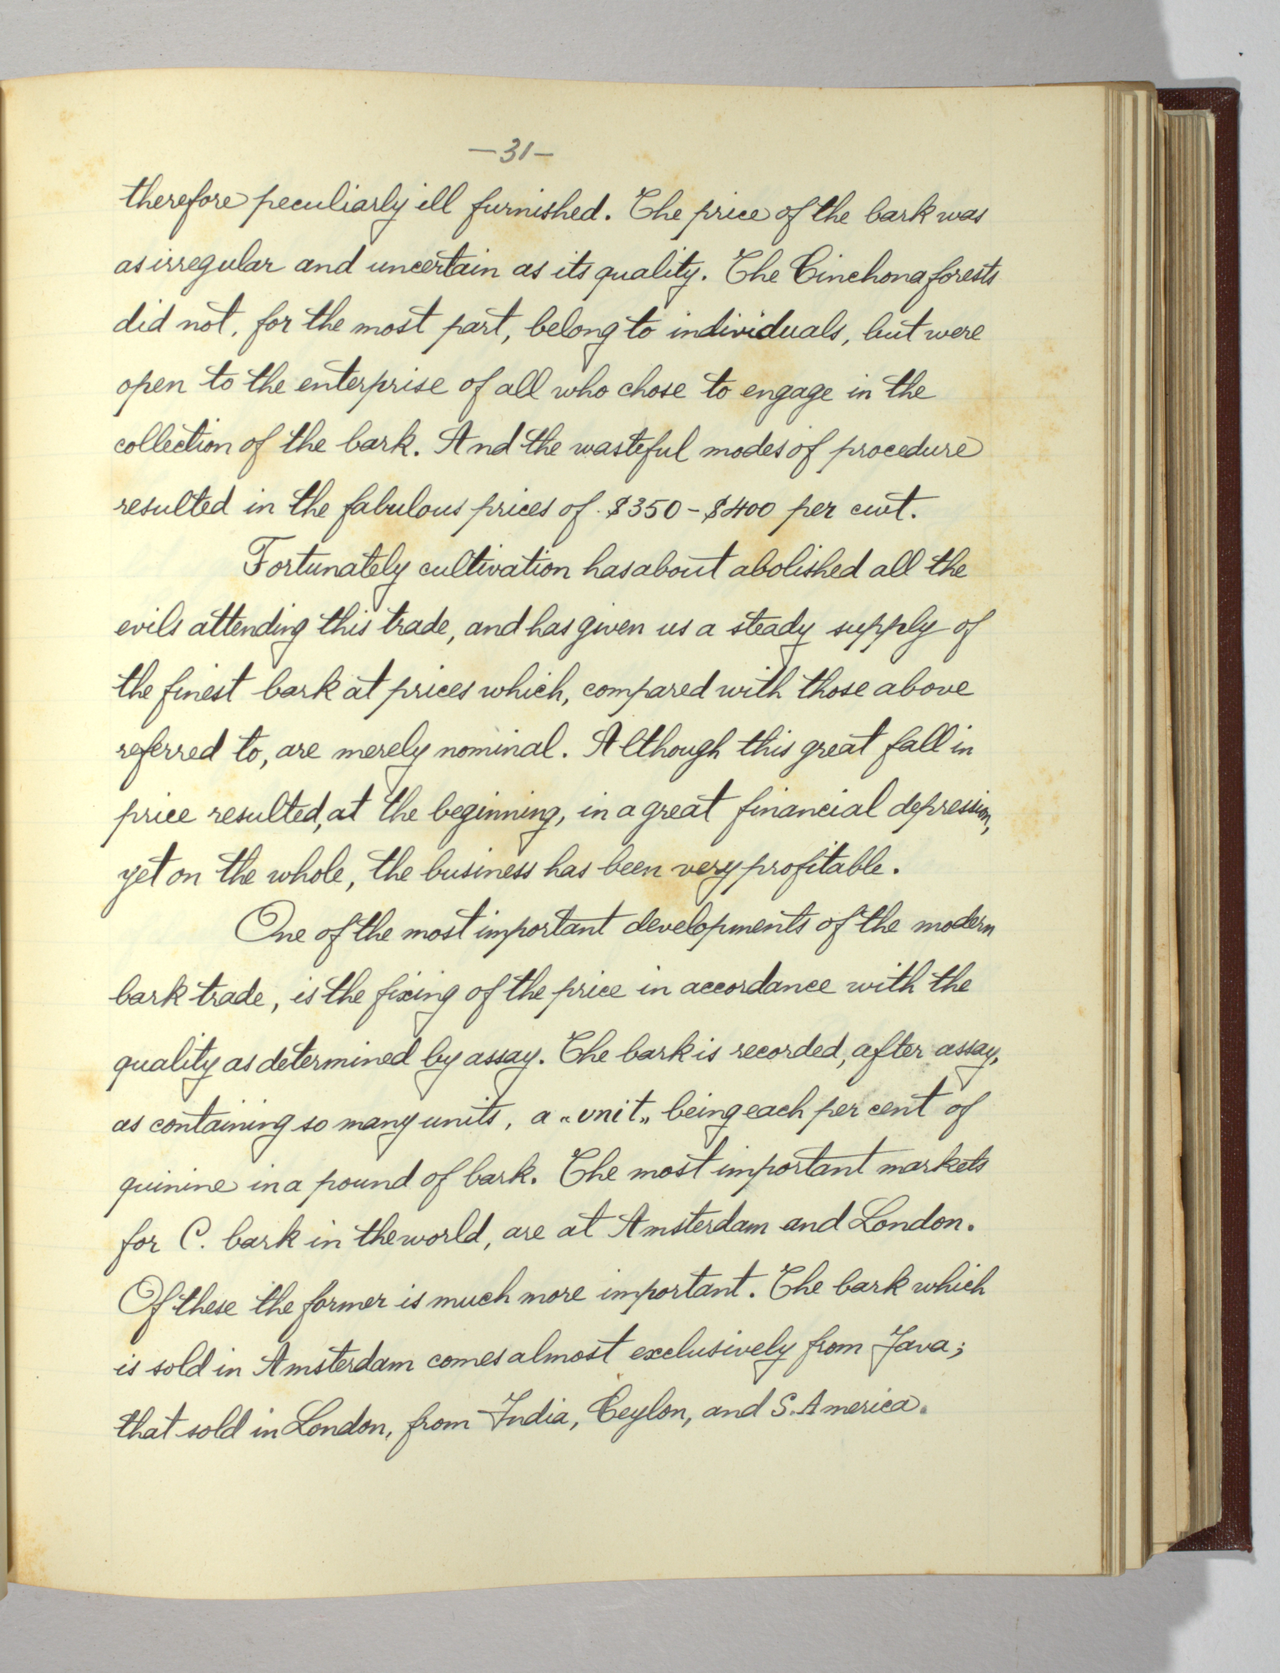 —31—
therefore peculiarly ill furnished. The price of the bark was
as irregular and uncertain as its quality. The Cinchona forests
did not, for the most part, belong to individuals, but were
open to the enterprise of all who chose to engage in the
collection of the bark. And the wasteful modes of procedure
resulted in the fabulous prices of $350-$400 per cwt.
Fortunately cultivation has about abolished all the
evils attending this trade, and has given us a steady supply of
the finest bark at prices which, compared with those above
referred to, are merely nominal. Although this great fall in
price resulted, at the beginning, in a great financial depression,
yet on the whole, the business has been very profitable.
One of the most important developments of the modern
bark trade, is the fixing of the price in accordance with the
quality as determined by assay. The bark is recorded, after assay,
as containing so many units, a „unit„ being each per cent of
quinine in a pound of bark. The most important markets
for C. bark in the world, are at Amsterdam and London.
Of these the former is much more important. The bark which
is sold in Amsterdam comes almost exclusively from Java;
that sold in London, from India, Ceylon, and S. America.